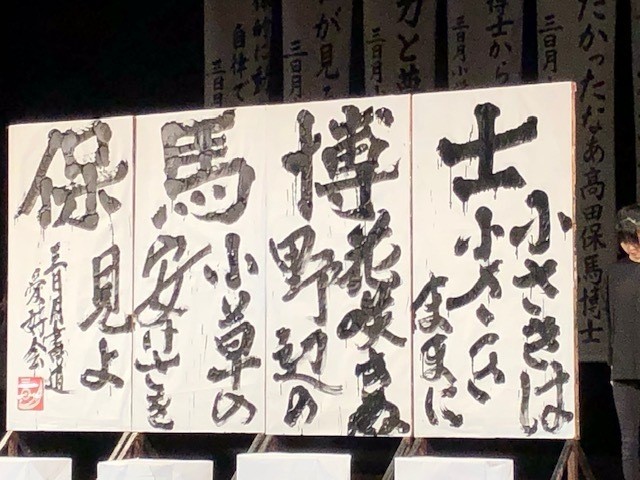 たかったなあ高田保馬博士
三日月
博士から
三日月小
力と
三日月
が見
三日月
体的に
自律で
三日月
士
小さきは
小さき
ままに
博
花咲きぬ
野辺の
馬
小草の
安けさを
保
見よ
三日月書道
愛好会